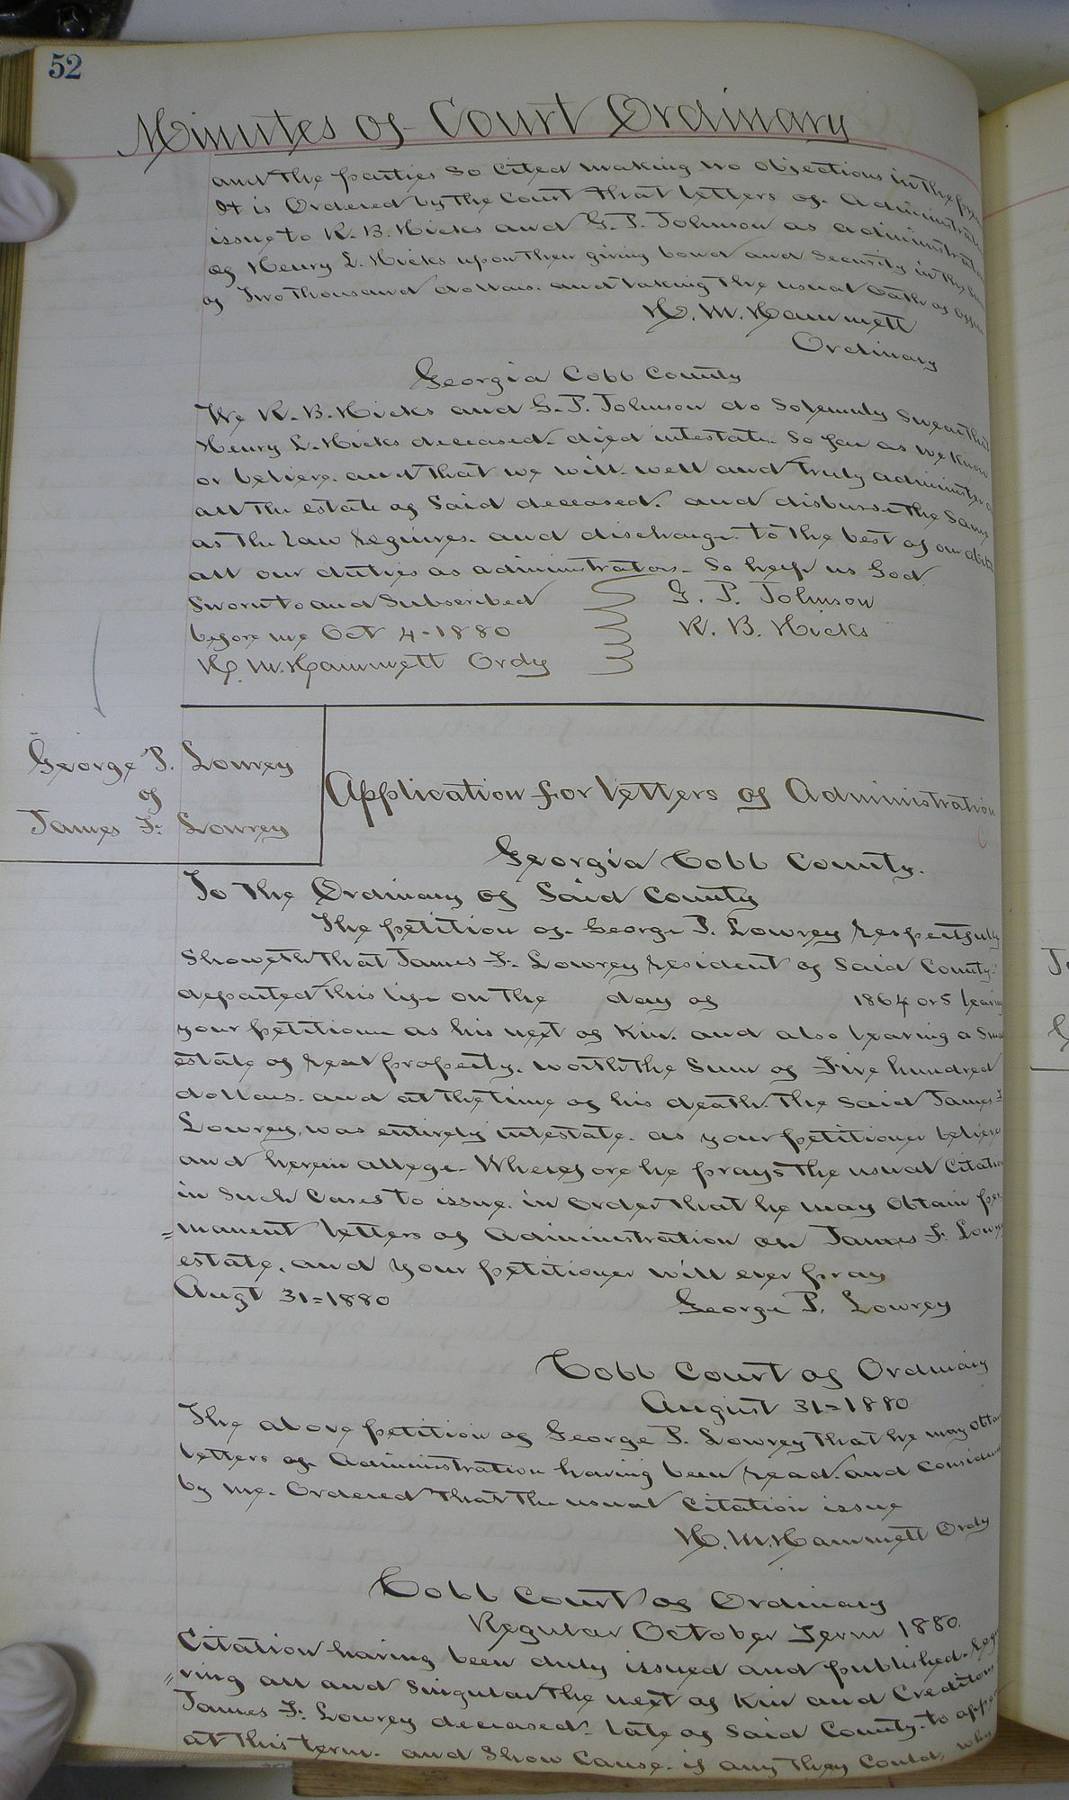 52
Minutes of Court Ordinary
and the parties so cited making no objections in the
It is Ordered by the Court that letters of Administration
issue to R. B. Hicks and G. P. Johnson as administrators
of Henry L. Hicks upon their giving bond and security in the sum
of Two thousand dollars. and taking the usual oath of office
H. M. Hammett
Ordinary
Georgia Cobb County
We R. B. Hicks and G. P. Johnson do Solemnly Swear that
Henry L. Hicks deceased. died intestate So far as we know
or believe. and that we will well and truly administer
all the estate of Said deceased. and disburse the Same
as the Law Requires. and discharge to the best of our
all our duties as administrators. So help us God
Sworn to and Subscribed G. P. Johnson
before me Oct 4-1880 R. B. Hicks
H. M. Hammett Ordy
George P. Lowrey
of
James F. Lowrey
Application for letters of Administration
Georgia Cobb County.
To the Ordinary of Said County
The petition of George P. Lowrey Respectfully
Showeth that James F. Lowrey Resident of Said County
departed this life on the day of 1864 or 5 leaving
your petitioner as his next of Kin. and also leaving a
estate of Real property. worth the Sum of Five hundred
dollars. and at the time of his death. The Said James F
Lowrey, was entirely intestate. as your petitioner believes
and herein allege. Wherefore he prays the usual Citation
in Such Cases to issue. in order that he may Obtain per
=manent letters of Administration on James F. Lowrey
estate. and your petitioner will ever pray
Augt 31=1880 George P. Lowrey
Cobb Court of Ordinary
August 31=1880
The above petition of George P. Lowrey that he may obtain
letters of Administration having been read. and Considered
by me. Ordered that the usual Citation issue
H. M. Hammett Ordy
Cobb Court of Ordinary
Regular October Term 1880.
Citation having been duly issued and published. Requi
"ring all and Singular the next of Kin and Creditors
James F. Lowrey deceased. late of Said County. to appear
at this term. and Show Cause. if any they Could, why